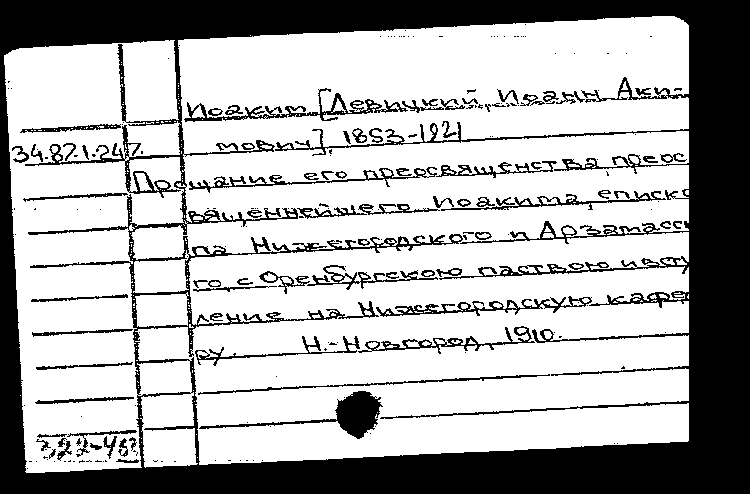 Иоаким [Левицкий, Иоанн Аки-
34.87.1.247. мович], 1853-1921
Прощание его преосвященства, преос
вященнейшего Иоакима, еписко
па Нижегородского и Арзамасск
го, с Оренбургскою паствою и всту
ление на Нижегородскую кафе
ру. Н.-Новгород, 1910.
322-46